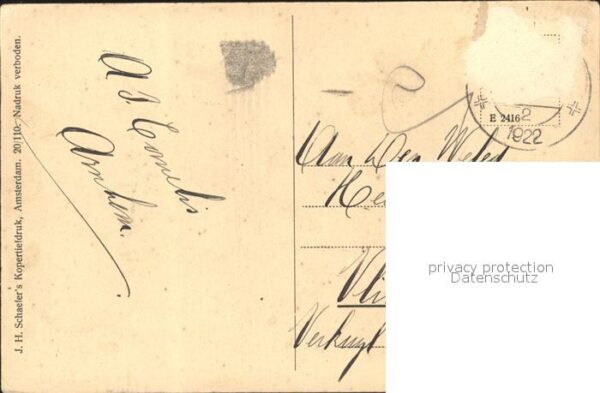 J. H. Schaefer's Kopertiefdruk, Amsterdam. 20/110. Nadruk verboden.
A J. Cornelis
Arnhem.
E 2416
2
1922
Aan Den Weled
Hee
Vli
Verkuyl
privacy protection
Datenschutz